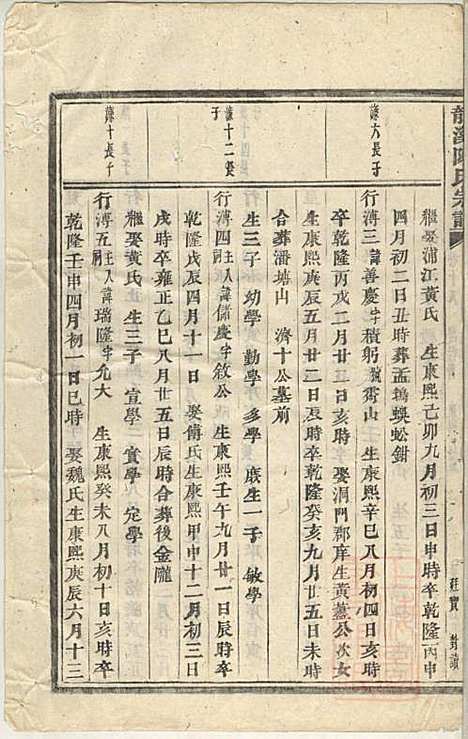 龍溪陳氏宗譜
繼娶浦江黃氏 生康熙己卯九月初三日申時卒乾隆丙申
四月初二日丑時葬孟塢蜈蚣鉗
濟六長子
行溥三諱善慶字積躬號霽山 生康熙辛巳八月初四日亥時
卒乾隆丙戌二月廿三日亥時 娶洞門鄭庠生黃蓋公次女
生康熙庚辰五月廿二日辰時卒乾隆癸亥九月廿五日未時
合葬潘塘山 濟十公墓前
生三子 幼學 勤學 多學 庶生一子 敏學
濟十二長子
行溥四主入祠諱儲慶字敘公 生康熙壬午九月廿一日辰時卒
乾隆戊辰四月十一日 娶傅氏生康熙甲申十二月初三日
戌時卒雍正乙巳八月廿五日辰時合葬後金隴
繼娶黃氏生三子 宣學 實學 定學
濟十長子
行溥五主入祠諱瑞隆字允大 生康熙癸未八月初十日亥時卒
乾隆壬申四月初一日巳時 娶魏氏生康熙庚辰六月十三